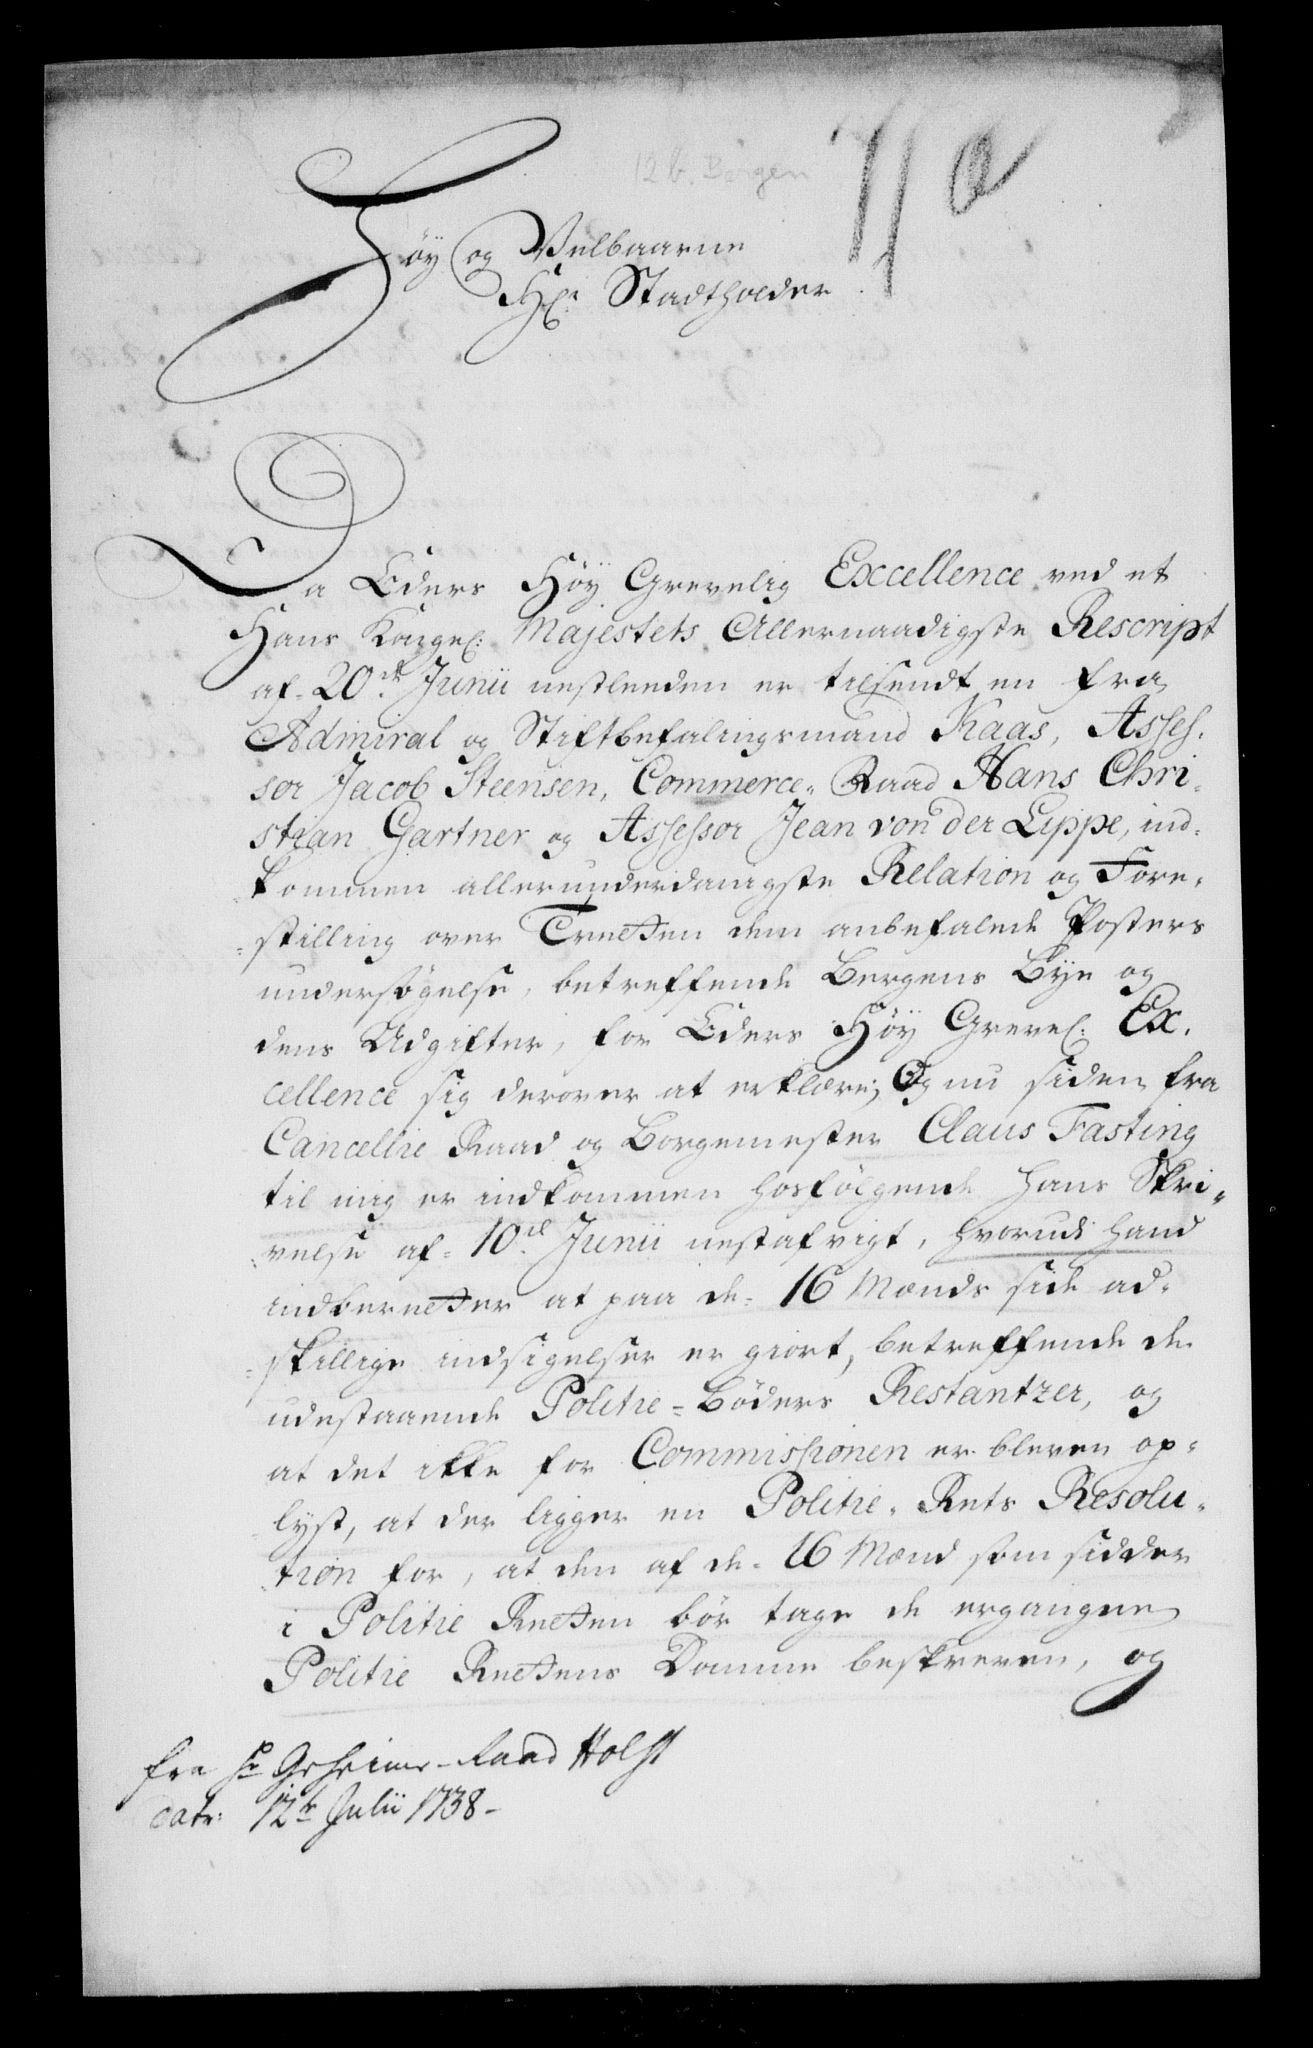 12 b. Bergen
Høy og Velbaarne
Hr. Stadtholder
Da Eders Høy Grevelig Excellence ved et
Hans Kongel: Majestets Allernaadigste Rescript
af 20de Junii nestleeden er tilsendt en fra
Admiral og Stiftbefalingsmand Kaas, Asses-
sor Jacob Steensen, Commerce-Raad Hans Chri-
stian Gartner og Assessor Jean von der Lippe, ind-
kommen allerunderdanigste Relation og Fore-
stilling over Tretten dem anbefalede Posters
undersøgelse, betreffende Bergens Bye og
dens Udgifter, for Eders Høy Grevel: Ex-
cellence sig derover at erklære; Og nu siden fra
Cancellie Raad og Borgemester Claus Fasting
til mig er indkommen hosfølgende hans Skri-
velse af 10de Junii nestafvigt, hvorudi hand
indberetter at paa de 16 Mænds side ad-
skillige indsigelser er giort, betreffende de
udestaaende Politie-Bøders Restantzer, og
at det ikke for Commissionen er bleven op-
lyst, at der ligger en Politie-Rets Resolu-
tion for, at den af de 16 Mænd som sidder
i Politie Retten bør tage de ergangne
Politie Rettens Domme beskreven, og
fra Hr Geheime-Raad Holst
dat: 12te Julii 1738-